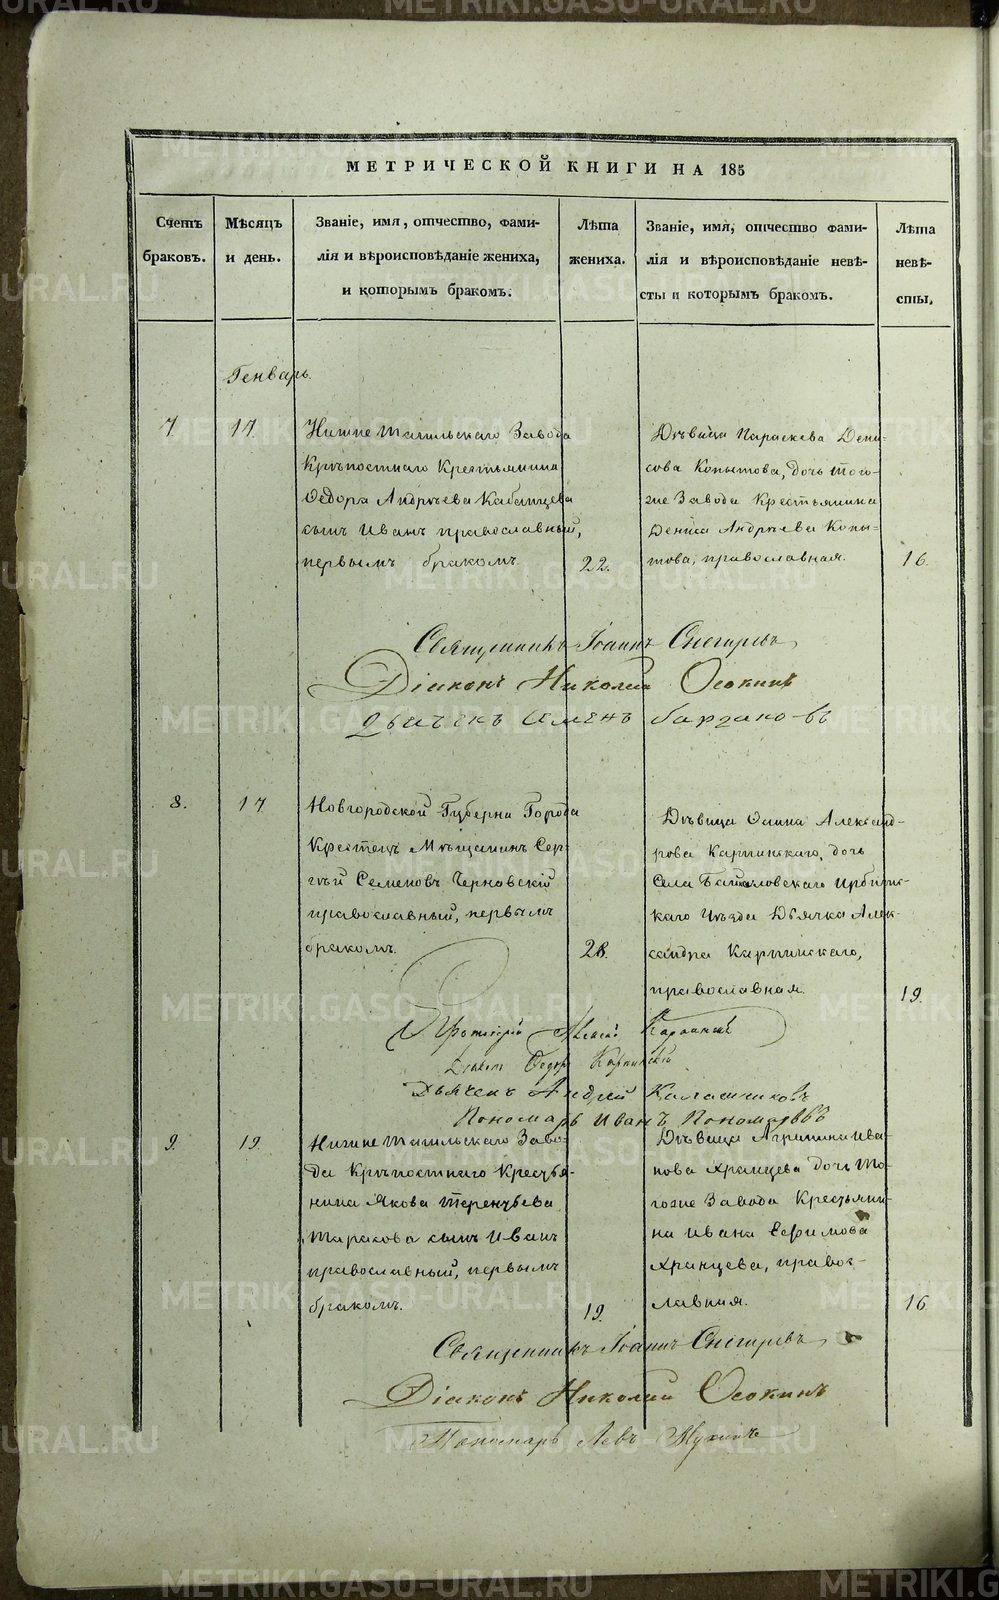 METRIKI.GASO-URAL.RU
МЕТРИЧЕСКОЙ КНИГИ НА 185
Счетъ браковъ.
Мѣсяцъ и день.
Званіе, имя, отчество, фами-
лія и вѣроисповѣданіе жениха,
и которымъ бракомъ.
Лѣта жениха.
Званіе, имя, отчество фами-
лія и вѣроисповѣданіе невѣ-
сты и которымъ бракомъ.
Лѣта невѣ-
сты.
Генварь.
7.
17.
Нижне Тагильскаго Завода
Крѣпостнаго Крестьянина
Ѳедора Андрѣева Кабанцева
сынъ Иванъ православный,
первымъ бракомъ.
22.
Дѣвица Параскева Дени-
сова Копытова, дочь того-
же Завода Крестьянина
Дениса Андрѣева Копы-
това, православная.
16.
Священникъ Іоаннъ Снегиревъ
Діаконъ Николай Осокинъ
Дьячекъ Семенъ
8.
17
Новгородской Губерни Города
Крестецъ Мѣщанинъ Сер-
гѣй Семеновъ Черновскій
православный, первымъ
бракомъ.
Дѣвица Александ-
рова Карпинскаго, дочь
Села Байкаловскаго Ирбитс-
каго Уѣзда Дьячка Алек-
сандра Карпинскаго,
православная.
19.
Протоіерей
Діаконъ Карпинскій
Дьячекъ Андрей Калашниковъ
Пономарь Иванъ Пономаревъ
9.
19.
Нижне Тагильскаго Заво-
да Крѣпостнаго Крестья-
нина Якова Терентьева
Таракова сынъ Иванъ
православный, первымъ
бракомъ.
19.
Дѣвица Агрипина Ива-
нова Хранцева дочь то-
гоже Завода Крестьяни-
на Ивана Ефимова
Хранцева, правос-
лавная.
16
Священникъ Іоаннъ Снегиревъ
Діаконъ Николай Осокинъ
Пономарь Левъ